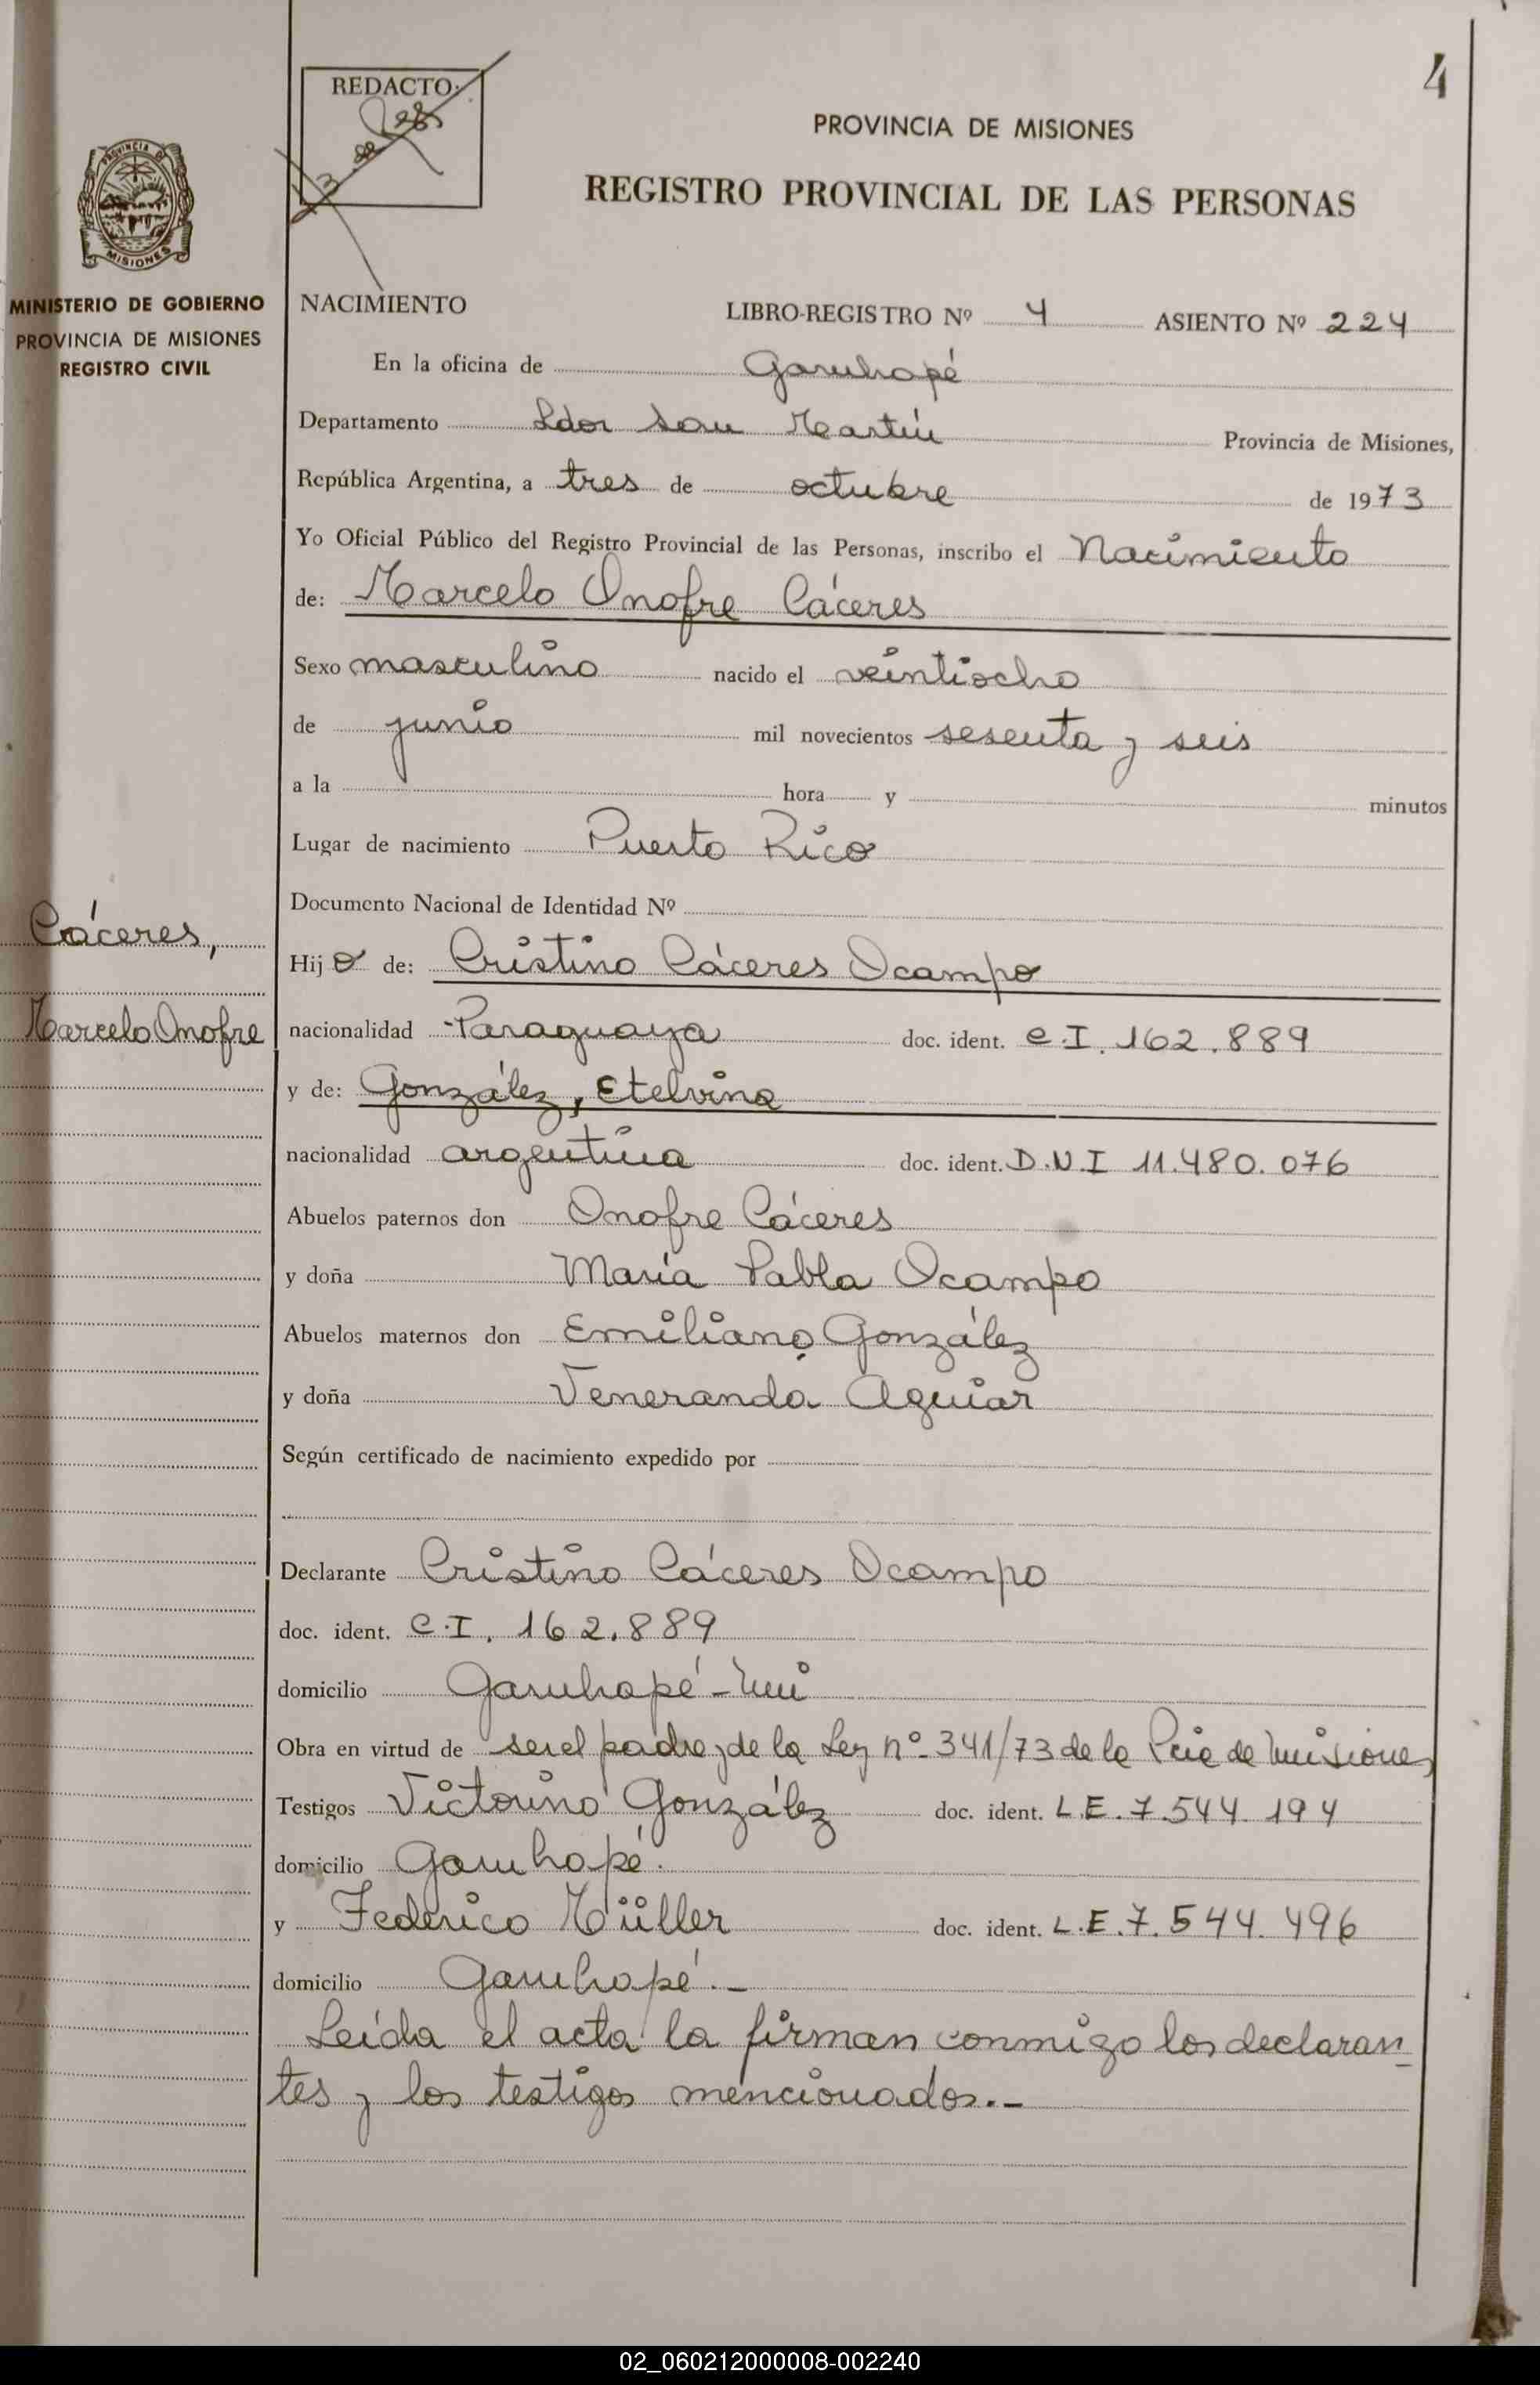 4
REDACTO:
PROVINCIA DE MISIONES
REGISTRO PROVINCIAL DE LAS PERSONAS
PROVINCIA DE
MISIONES
MINISTERIO DE GOBIERNO
PROVINCIA DE MISIONES
REGISTRO CIVIL
NACIMIENTO LIBRO-REGISTRO Nº 4 ASIENTO Nº 224
En la oficina de Garuhapé
Departamento Ldor San Martín Provincia de Misiones,
República Argentina, a tres de octubre de 1973
Yo Oficial Público del Registro Provincial de las Personas, inscribo el Nacimiento
de: Marcelo Onofre Cáceres
Sexo masculino nacido el veintiocho
de junio mil novecientos sesenta y seis
a la hora y minutos
Lugar de nacimiento Puerto Rico
Documento Nacional de Identidad Nº
Cáceres,
Marcelo Onofre
Hijo de: Cristino Cáceres Ocampo
nacionalidad Paraguaya doc. ident. C.I. 162.889
y de: González, Etelvina
nacionalidad argentina doc. ident. D.N.I 11.480.076
Abuelos paternos don Onofre Cáceres
y doña María Pabla Ocampo
Abuelos maternos don Emiliano González
y doña Veneranda Aguiar
Según certificado de nacimiento expedido por
Declarante Cristino Cáceres Ocampo
doc. ident. C.I. 162.889
domicilio Garuhapé-Miní
Obra en virtud de ser el padre y de la Ley nº 341/73 de la Pcia de Misiones
Testigos Victorino González doc. ident. L.E. 7.544.194
domicilio Garuhapé.
y Federico Müller doc. ident. L.E. 7.544.496
domicilio Garuhapé.-
Leída el acta la firman conmigo los declaran
tes y los testigos mencionados.-
02_060212000008-002240